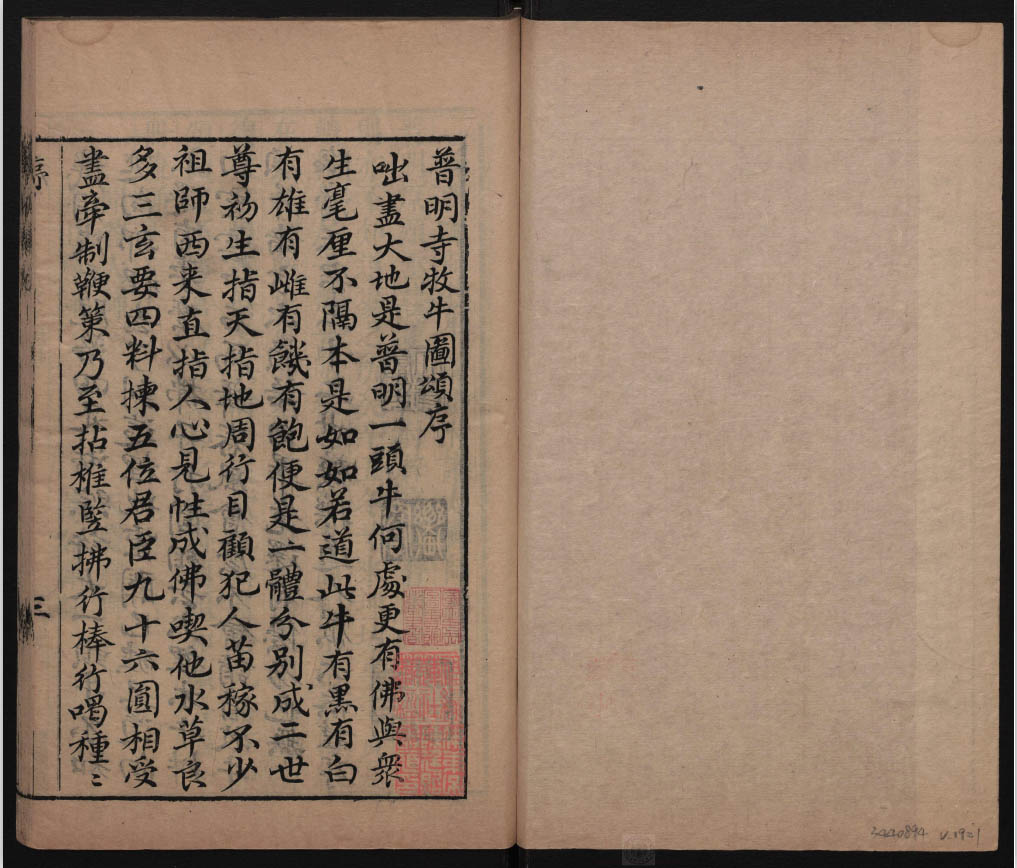 普明寺牧牛圖頌序
咄盡大地是普明一頭牛何處更有佛與衆
生毫厘不隔本是如如若道此牛有黑有白
有雄有雌有饑有飽便是一體分別成二世
尊初生指天指地周行目顧犯人苗稼不少
祖師西来直指人心見性成佛喫他水草良
多三玄要四料揀五位君臣九十六圓相受
盡牽制鞭策乃至拈椎竪拂行棒行喝種〻
序
三
3440894 v.19=1